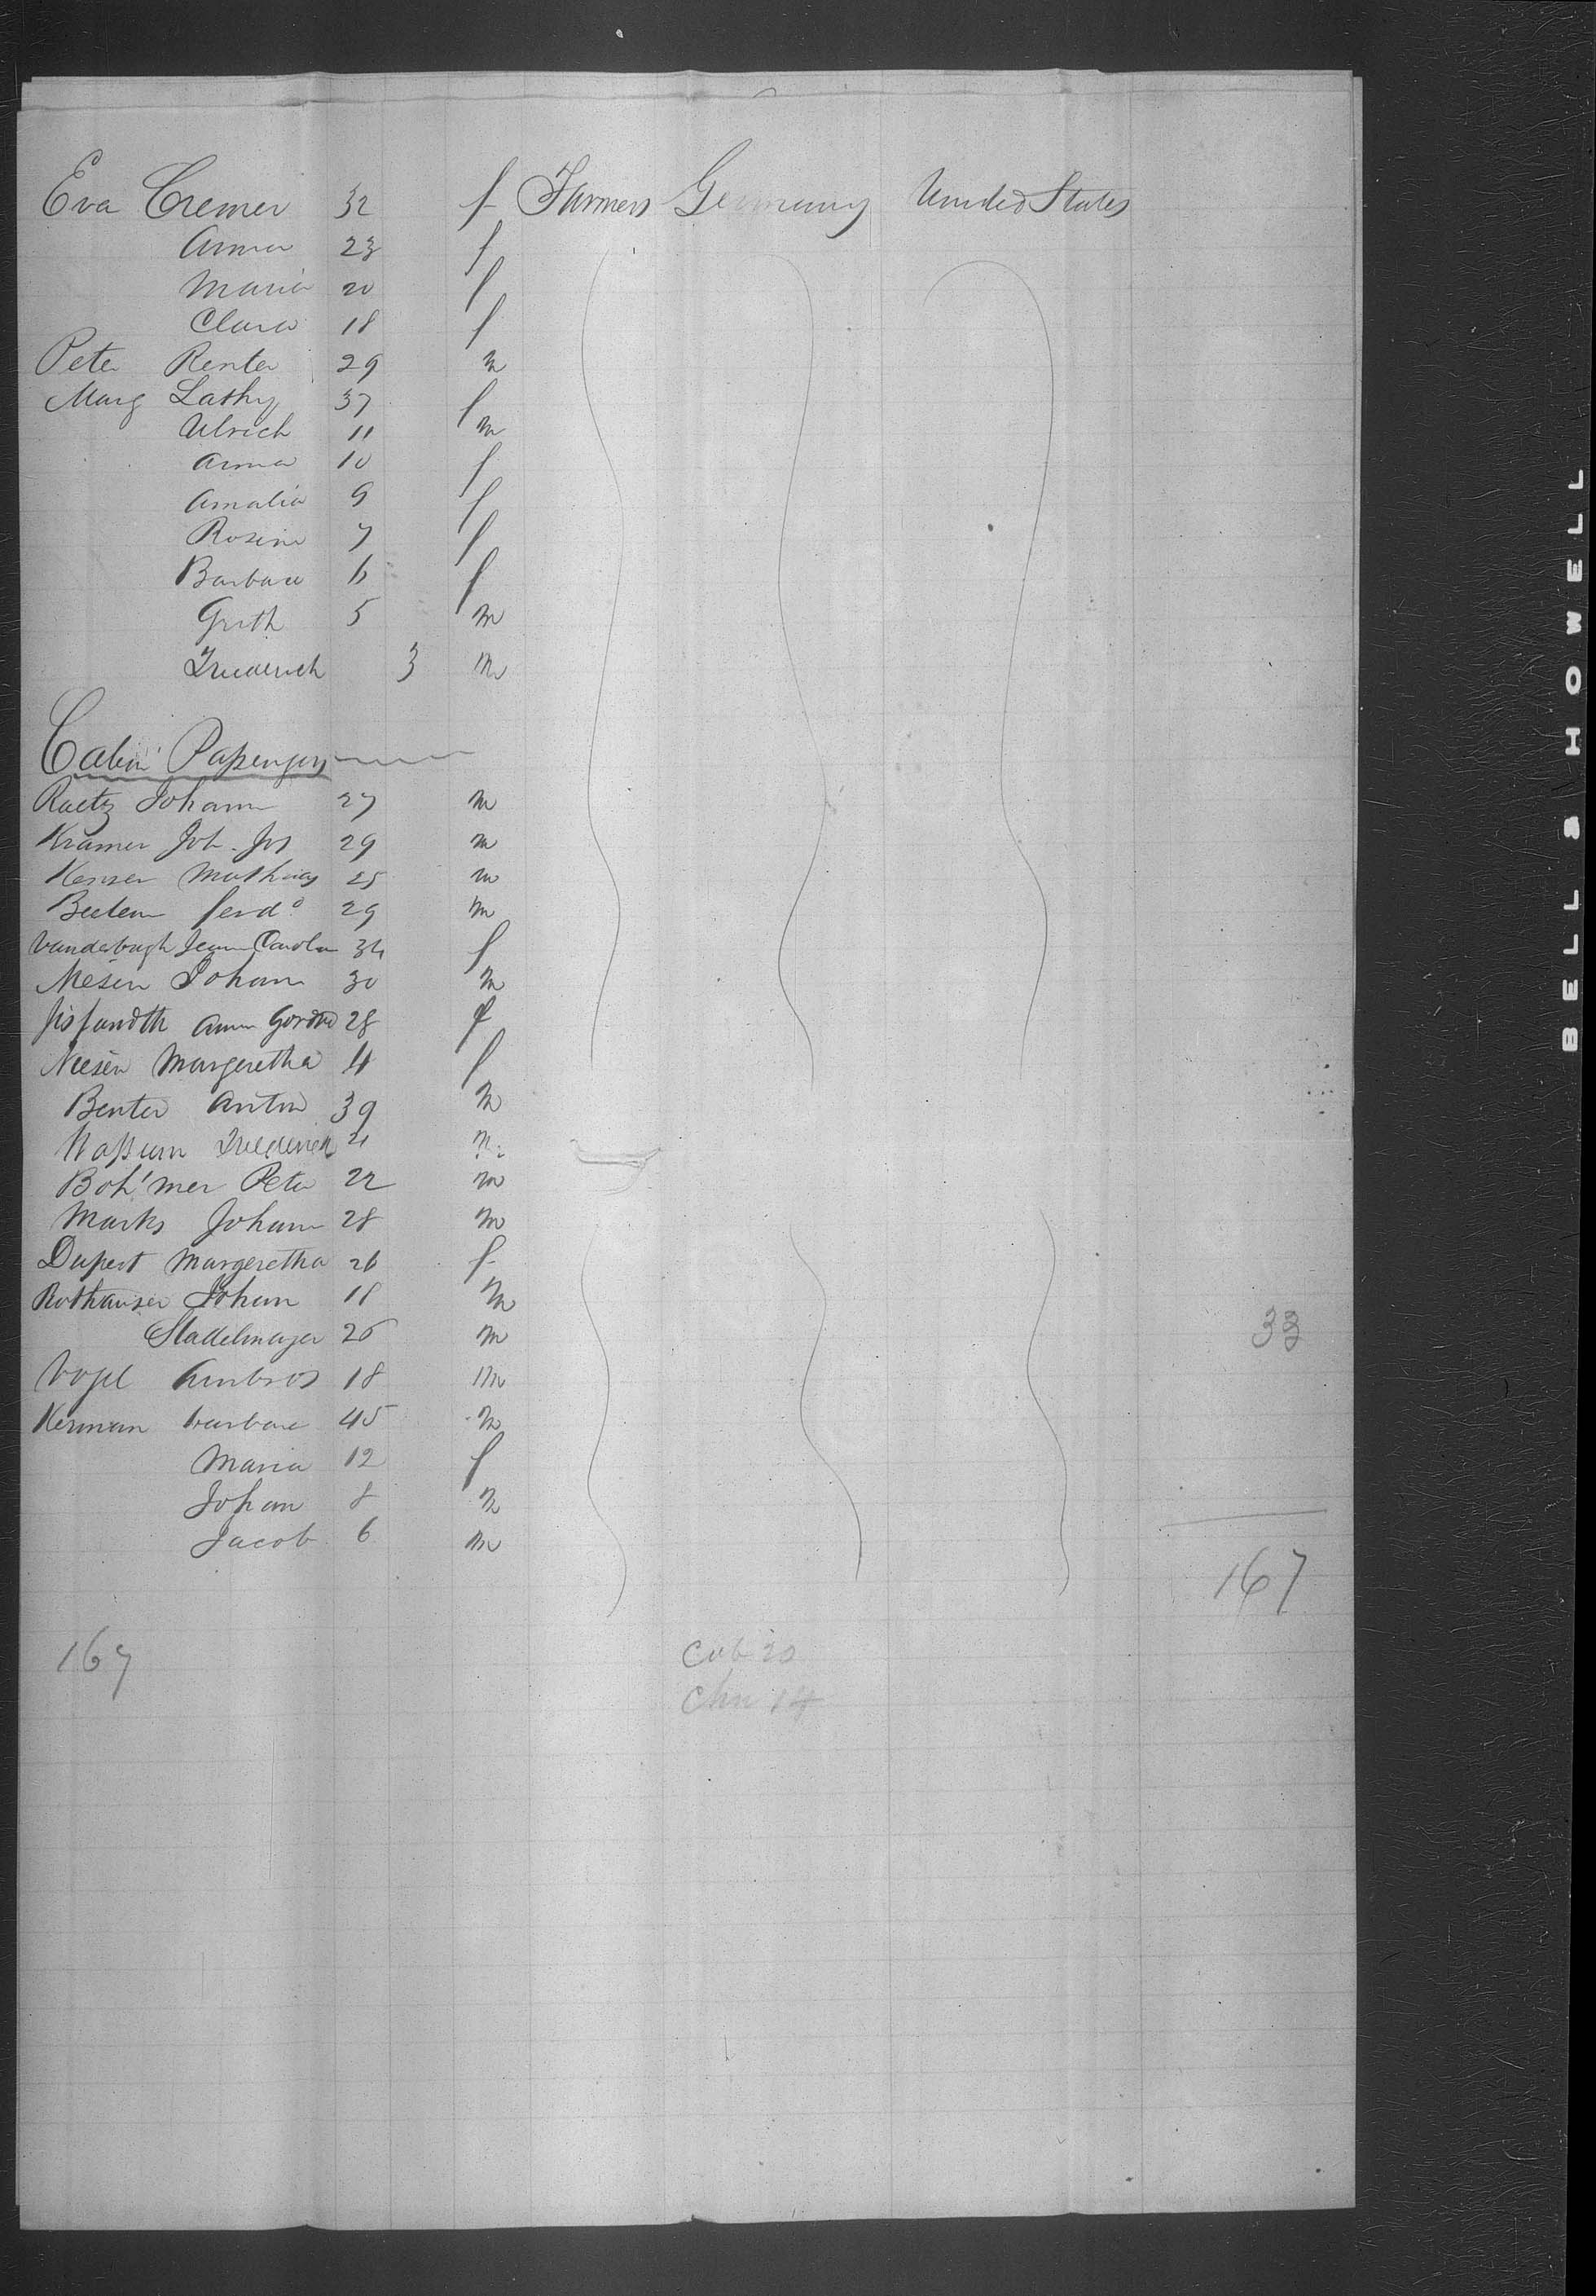 Eva Cremer 32 f Farmers Germany United States
Anna 23 f
Maria 20 f
Clara 18 f
Peter Renter 29 m
Marg Lathy 37 f
Ulrich 11 m
Anna 10 f
Amalia 9 f
Rosina 7 f
Barbara 6 f
Grith 5 m
Friederich 3 m
Cabin Passengers
Raetz Johann 27 m
Kramer Joh. Jos 29 m
Kenser Mathias 25 m
Beulem ferdo 29 m
Vanderbugh Jean Carolin 34 f
Niesen Johann 30 m
Anna 28 f
Niesen Margeretha 4 f
Benter Anton 39 m
Waßum Friederich 21 m
Boh'mer Peter 22 m
Marks Johann 28 m
Dupert Margeretha 26 f
Rothauser Johan 18 m
Stadelmayer 26 m
33
Vogel Ambros 18 m
Kerman barbara 45 m
Maria 12 f
Johan 8 m
Jacob 6 m
167
167
Cab 20
Chn 14
BELL & HOWELL